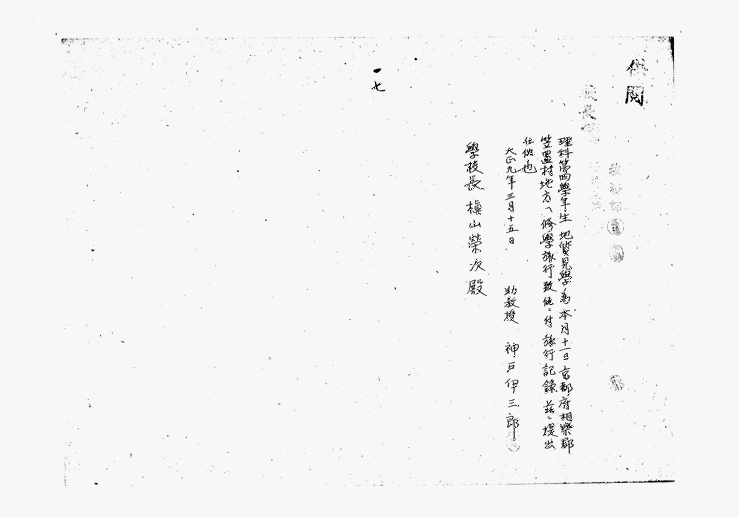 供閲
校長
理科第四學年生地質見學ノ爲本月十一日京都府相樂郡
笠置村地方ヘ修學旅行致候ニ付旅行記録茲ニ提出
仕候也
大正九年三月十五日
助教授 神戸伊三郎
學校長 槇山榮次殿
一七